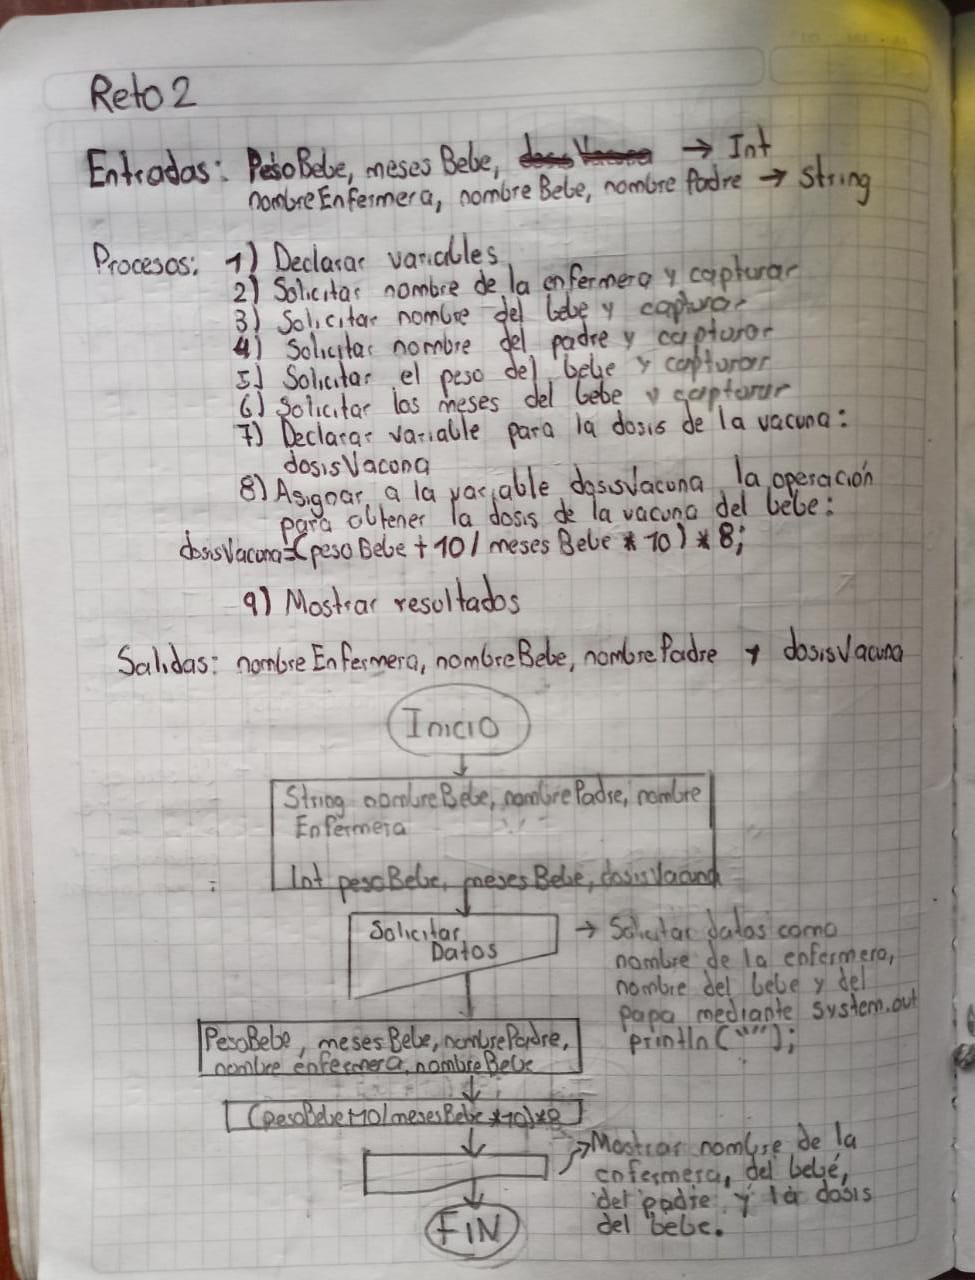 Reto 2
Entradas: PesoBebe, meses Bebe, → Int
nombreEnfermera, nombre Bebe, nombre Padre → String
Procesos: 1) Declarar variables
2) Solicitar nombre de la enfermera y capturar
3) Solicitar nombre del bebe y capturar
4) Solicitar nombre del padre y capturar
5) Solicitar el peso del bebe y capturar
6) Solicitar los meses del bebe y capturar
7) Declarar variable para la dosis de la vacuna:
dosisVacuna
8) Asignar a la variable dosisVacuna la operación
para obtener la dosis de la vacuna del bebe:
dosisVacuna=(peso Bebe + 10 / meses Bebe * 10) * 8;
9) Mostrar resultados
Salidas: nombre Enfermera, nombreBebe, nombre Padre y dosisVacuna
Inicio
String nombreBebe, nombrePadre, nombre
Enfermera
Int pesoBebe, mesesBebe, dosisVacuna
Solicitar
Datos
→ Solicitar datos como
nombre de la enfermera,
nombre del bebe y del
papa mediante system.out
println("");
PesoBebe, mesesBebe, nombrePadre,
nombre enfermera, nombreBebe
(pesoBebe+10/mesesBebe*10)*8
Mostrar nombre de la
enfermera, del bebé,
del padre y la dosis
del bebe.
FIN